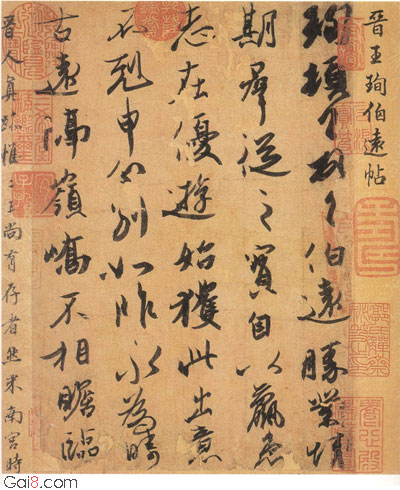 晉王珣伯遠帖
珣頓首頓首伯遠勝業情
期群從之寶自以羸患
志在優遊始獲此出意
不剋申分別如昨永為疇
古遠隔嶺嶠不相瞻臨
晉人真跡惟二王尚有存者然米南宮時
Gai8.com